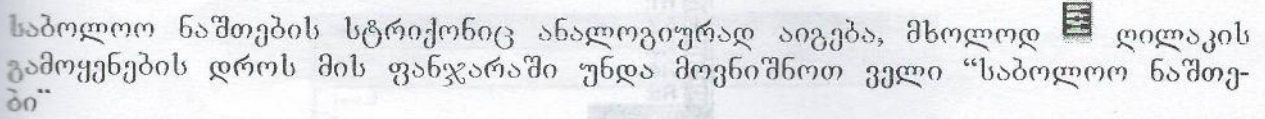 საბოლოო ნაშთების სტრიქონიც ანალოგიურად აიგება, მხოლოდ ღილაკის
გამოყენების დროს მის ფანჯარაში უნდა მოვნიშნოთ ველი “საბოლოო ნაშთე-
ბი“